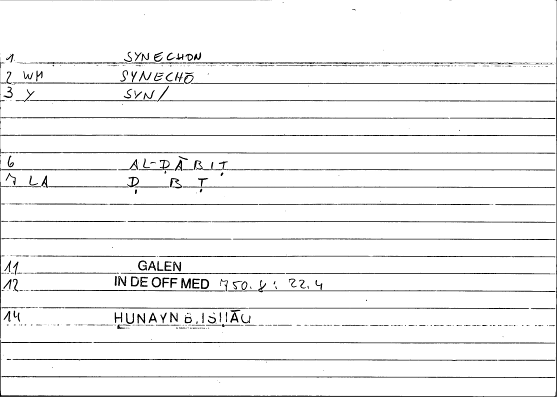 1 SYNECHON
2 WH SYNECHŌ
3 Y SYN/
6 AL-ḌĀBIṬ
7 LA Ḍ B Ṭ
11 GALEN
12 IN DE OFF MED 750.8: 22.4
14 HUNAYN B. ISḤĀQ